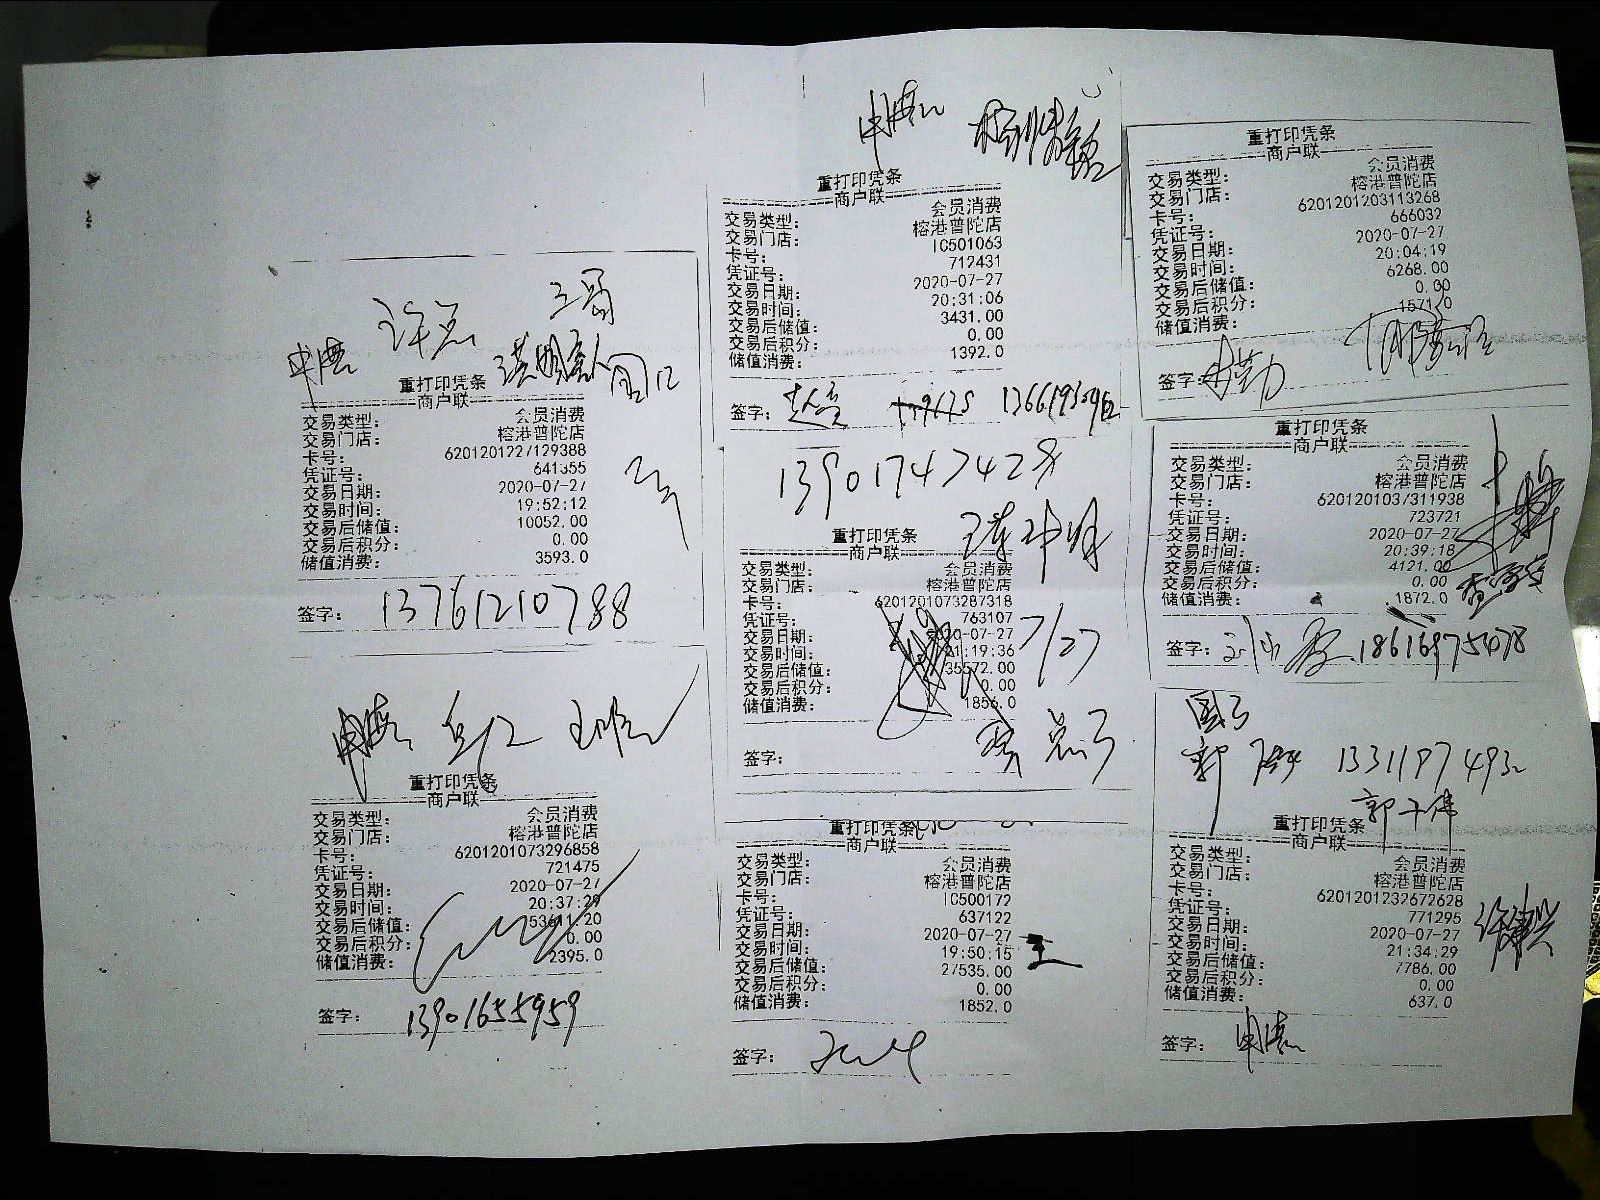 重打印凭条
商户联
交易类型： 会员消费
交易门店： 榕港普陀店
卡号： 6201201227129388
凭证号： 641355
交易日期： 2020-07-27
交易时间： 19:52:12
交易后储值： 10052.00
交易后积分： 0.00
储值消费： 3593.0
签字： 13761210788
重打印凭条
商户联
交易类型： 会员消费
交易门店： 榕港普陀店
卡号： 6201201073296858
凭证号： 721475
交易日期： 2020-07-27
交易时间： 20:37:29
交易后储值： 53611.20
交易后积分： 0.00
储值消费： 2395.0
签字： 13901655959
重打印凭条
商户联
交易类型： 会员消费
交易门店： 榕港普陀店
卡号： IC501063
凭证号： 712431
交易日期： 2020-07-27
交易时间： 20:31:06
交易后储值： 3431.00
交易后积分： 0.00
储值消费： 1392.0
签字：
13901747428
重打印凭条
商户联
交易类型： 会员消费
交易门店： 榕港普陀店
卡号： 6201201073287318
凭证号： 763107
交易日期： 2020-07-27
交易时间： 21:19:36
7/27
交易后储值： 35572.00
交易后积分： 0.00
储值消费： 1856.0
签字：
重打印凭条
商户联
交易类型： 会员消费
交易门店： 榕港普陀店
卡号： IC500172
凭证号： 637122
交易日期： 2020-07-27
交易时间： 19:50:15
王
交易后储值： 27535.00
交易后积分： 0.00
储值消费： 1852.0
签字：
重打印凭条
商户联
交易类型： 会员消费
交易门店： 榕港普陀店
卡号： 6201201203113268
凭证号： 666032
交易日期： 2020-07-27
交易时间： 20:04:19
交易后储值： 6268.00
交易后积分： 0.00
储值消费： 1571.0
签字：
重打印凭条
商户联
交易类型： 会员消费
交易门店： 榕港普陀店
卡号： 6201201037311938
凭证号： 723721
交易日期： 2020-07-27
交易时间： 20:39:18
交易后储值： 4121.00
交易后积分： 0.00
储值消费： 1872.0
签字： 18616975078
郭 13311974932
重打印凭条
商户联
交易类型： 会员消费
交易门店： 榕港普陀店
卡号： 6201201232672628
凭证号： 771295
交易日期： 2020-07-27
交易时间： 21:34:29
交易后储值： 7786.00
交易后积分： 0.00
储值消费： 637.0
签字：